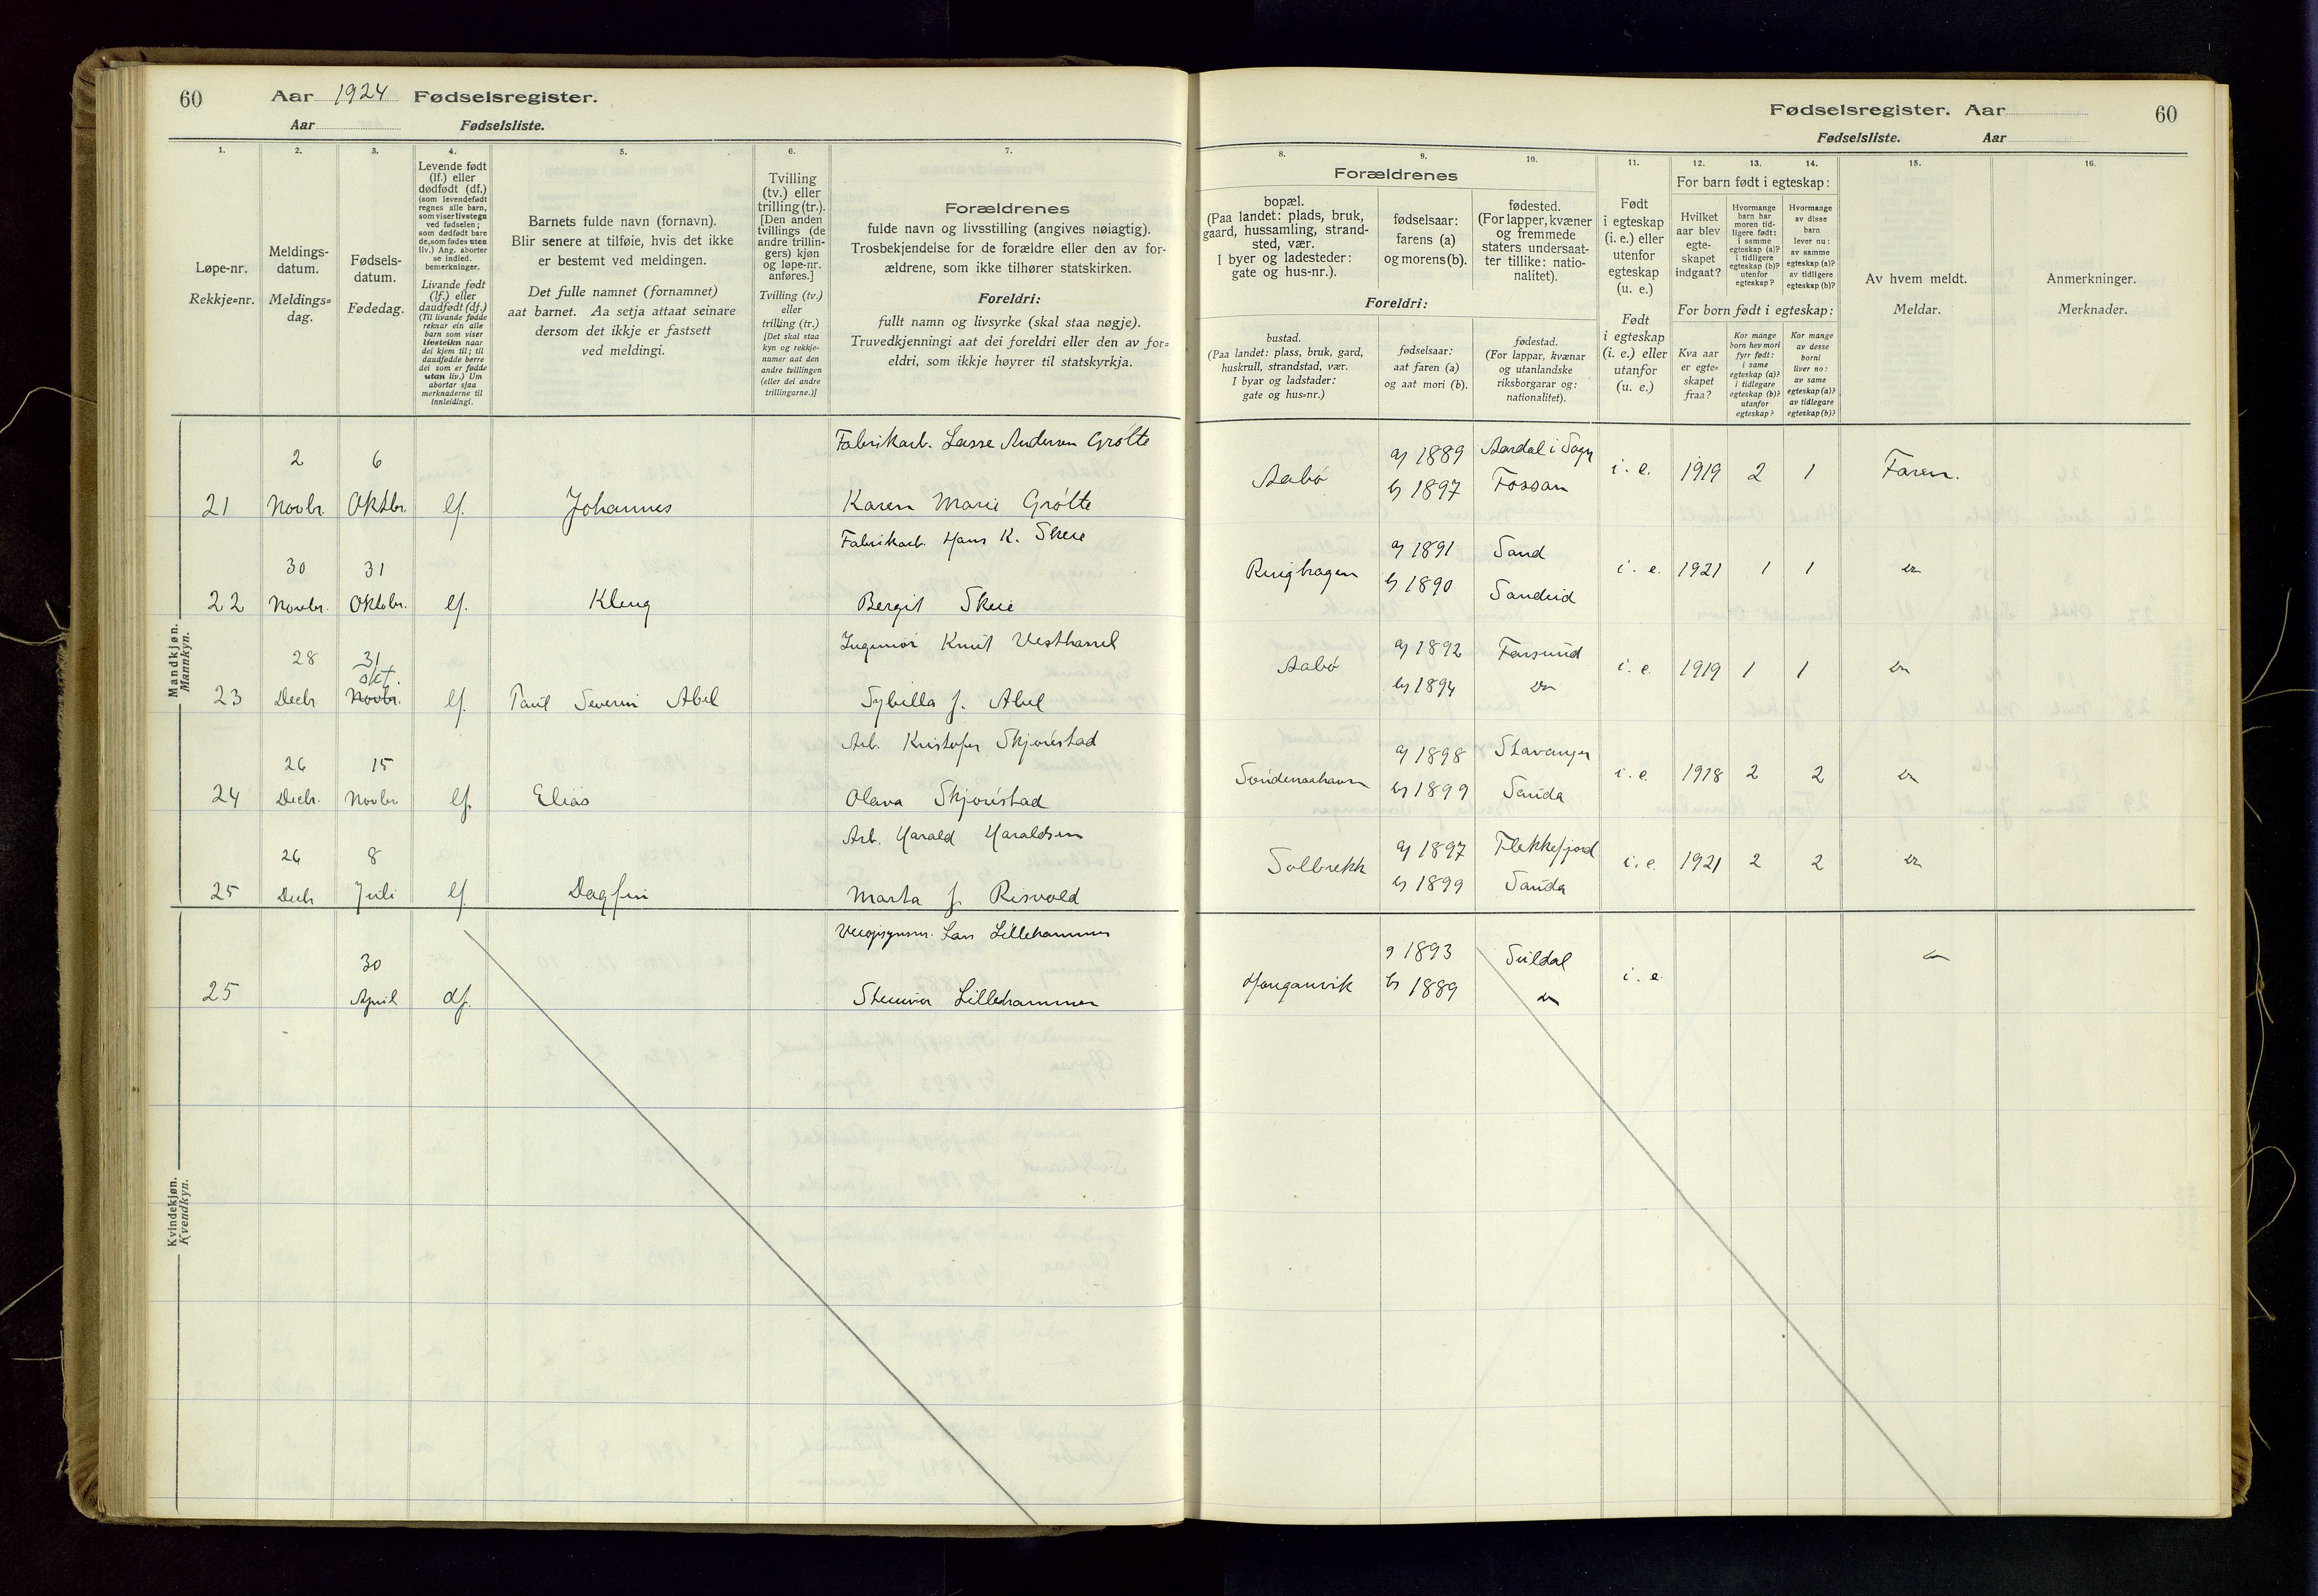 60 Aar 1924 Fødselsregister.
Aar Fødselsliste.
Fødselsregister. Aar 60
Fødselsliste. Aar
1.
Løpe-nr.
Rekkje=nr.
2.
Meldings-
datum.
Meldings=
dag.
3.
Fødsels-
datum.
Fødedag.
4.
Levende født
(lf.) eller
dødfødt (df.)
(som levendefødt
regnes alle barn,
som viser livstegn
ved fødselen;
som dødfødt bare
de, som fødes uten
liv.) Ang. aborter
se indled.
bemerkninger.
Livande født
(lf.) eller
daudfødt (df.)
(Til livande fødde
reknar ein alle
barn som viser
livsteikn naar
dei kjem til; til
daudfødde berre
dei som er fødde
utan liv.) Um
abortar sjaa
merknaderne til
innleidingi.
5.
Barnets fulde navn (fornavn).
Blir senere at tilføie, hvis det ikke
er bestemt ved meldingen.
Det fulle namnet (fornamnet)
aat barnet. Aa setja attaat seinare
dersom det ikkje er fastsett
ved meldingi.
6.
Tvilling
(tv.) eller
trilling (tr.).
[Den anden
tvillings (de
andre trillin-
gers) kjøn
og løpe-nr.
anføres.]
Tvilling (tv.)
eller
trilling (tr.)
[Det skal staa
kyn og rekkje-
numer aat den
andre tvillingen
(eller dei andre
trillingarne.)]
7.
Forældrenes
fulde navn og livsstilling (angives nøiagtig).
Trosbekjendelse for de forældre eller den av for-
ældrene, som ikke tilhører statskirken.
Foreldri:
fullt namn og livsyrke (skal staa nøgje).
Truvedkjenningi aat dei foreldri eller den av for=
eldri, som ikkje høyrer til statskyrkja.
Forældrenes
8.
bopæl.
(Paa landet: plads, bruk,
gaard, hussamling, strand-
sted, vær.
I byer og ladesteder:
gate og hus-nr.).
9.
fødselsaar:
farens (a)
og morens (b).
10.
fødested.
(For lapper, kvæner
og fremmede
staters undersaat-
ter tillike: natio-
nalitet).
Foreldri:
bustad.
(Paa landet: plass, bruk, gard,
huskrull, strandstad, vær.
I byar og ladstader:
gate og hus=nr.)
fødselsaar:
aat faren (a)
og aat mori (b).
fødestad.
(For lappar, kvænar
og utanlandske
riksborgarar og:
nationalitet).
11.
Født
i egteskap
(i. e.) eller
utenfor
egteskap
(u. e.)
Født
i egteskap
(i. e.) eller
utanfor
(u. e.)
12. 13. 14.
For barn født i egteskap:
Hvilket
aar blev
egte-
skapet
indgaat?
Hvormange
barn har
moren tid-
ligere født:
i samme
egteskap (a)?
i tidligere
egteskap (b)?
utenfor
egteskap?
Hvormange
av disse
barn
lever nu:
av samme
egteskap (a)?
av tidligere
egteskap (b)?
For born født i egteskap:
Kva aar
er egte=
skapet
fraa?
Kor mange
born hev mori
fyrr født:
i same
egteskap (a)?
i tidlegare
egteskap (b)?
utanfor
egteskap?
Kor mange
av desse
borni
liver no:
av same
egteskap (a)?
av tidlegare
egteskap (b)?
15.
Av hvem meldt.
Meldar.
16.
Anmerkninger.
Merknader.
Mandkjøn.
Mannkyn.
21 2 Novbr. 6 Oktbr. lf. Johannes
Fabrikarb. Lasse Andersen Grøtte
Karen Marie Grøtte
Aabø a) 1889 Aardal i Sogn
b) 1897 Fossan
i. e. 1919 2 1 Faren.
22 30 Novbr. 31 Oktobr. lf. Kleng
Fabrikarb. Hans K. Skeie
Bergit Skeie
Ringhagen a) 1891 Sand
b) 1890 Sandeid
i. e. 1921 1 1 do
23 28 Decbr. 31 okt. Novbr. lf. Paul Severin Abel
Ingeniør Knut Vesthassel
Sybilla f. Abel
Aabø a) 1892 Farsund
b) 1894 do
i. e. 1919 1 1 do
24 26 Decbr. 15 Novbr lf. Elias
Arb. Kristofer Skjørestad
Olava Skjørestad
Søndenaahavn a) 1898 Stavanger
b) 1899 Sauda
i. e. 1918 2 2 do
25 26 Decbr 8 Juli lf. Dagfin
Arb. Harald Haraldsen
Marta f. Risvold
Solbrekk a) 1897 Flekkefjord
b) 1899 Sauda
i. e. 1921 2 2 do
Kvindekjøn.
Kvendkyn.
25 30 April df.
Lars Lillehammer
Lillehammer
Honganvik a 1893 Suldal
b) 1889 do
i. e. do